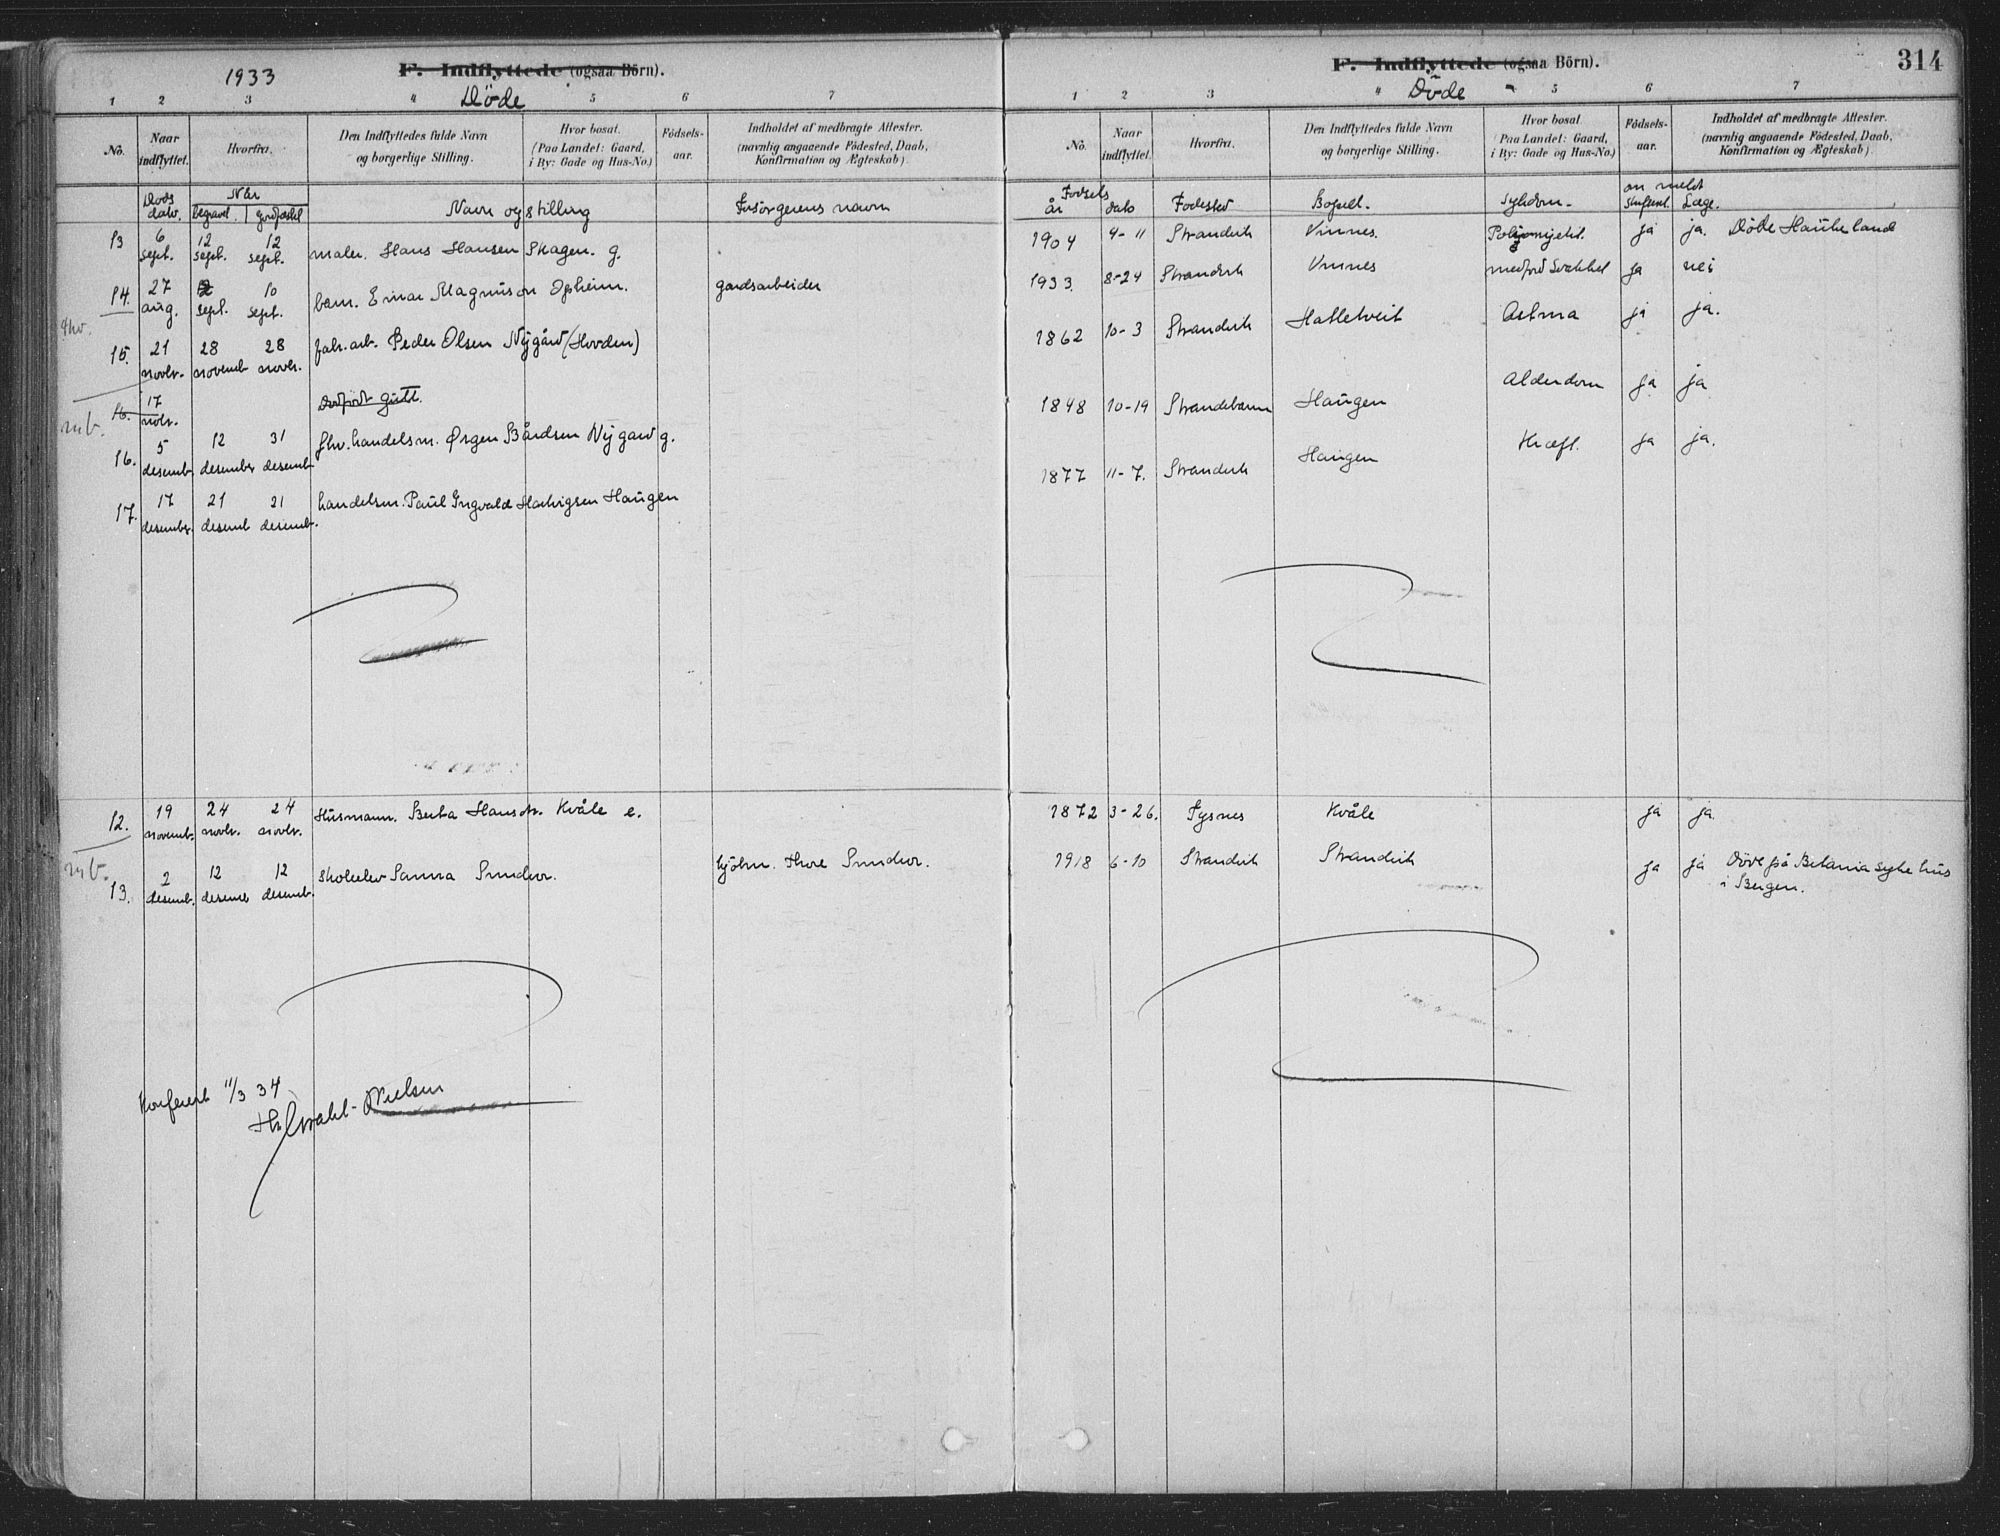 1933
F. Indflyttede (ogsaa Börn).
Døde
1 2 3 4 5 6 7
No.
Naar indflyttet.
Hvorfra.
Den Indflyttedes fulde Navn og borgerlige Stilling.
Hvor bosat. (Paa Landet: Gaard, i By: Gade og Hus-No.)
Födsels-aar.
Indholdet af medbragte Attester. (navnlig angaaende Födested, Daab, Konfirmation og Ægteskab).
Døds dato. Når begravet. jordfæstet Navn og stilling Forsørgerens navn
13 6 sept. 12 sept. 12 sept. maler. Hans Hansen Skagen. g.
14. 27 aug. sept. 10 sept. barn. Einar Magnuson Opheim. gardsarbeider
15. 21 novbr. 28 novemb 28 novbr. fabr. arb. Peder Olsen Nygård (Hovden)
16. 17 novbr. Dødfødt gutt.
16. 5 desemb. 12 desember 31 desemb. fhv. handelsm. Ørgen Bårdsen Nygard g.
17. 17 desember 21 desemb 21 desemb. handelsm. Paul Ingvald Hartvigsen Haugen
12. 19 novemb. 24 novbr. 24 novbr. Husmann. Berta Hansdtr. Kvåle e.
13. 2 desemb. 12 desemb 12 desemb. skoleelev Sanna Sundvor. kjøbm. Thore Sundvor.
Konferert 11/3 34
Hvoslef-Nielsen
314
F. Indflyttede (ogsaa Börn).
Døde
1 2 3 4 5 6 7
No.
Naar indflyttet.
Hvorfra.
Den Indflyttedes fulde Navn og borgerlige Stilling.
Hvor bosat (Paa Landet: Gaard, i By: Gade og Hus-No.)
Födsels-aar.
Indholdet af medbragte Attester. (navnlig angaaende Födested, Daab, Konfirmation og Ægteskab).
Fødsels år dato Fødested Bopæl. Sykdom. an meldt skifteret. Læge.
1904 4-11 Strandvik Vinnes. ja ja. Døde Haukeland
1933 8-24 Strandvik Vinnes medfød svakhet ja nei
1862 10-3 Strandvik Hatletveit Astma ja ja.
1848 10-19 Strandebarm Haugen Alderdom ja ja
1877 11-7. Strandvik Haugen Kræft. ja ja.
1872 3-26. Tysnes Kvåle ja ja.
1918 6-10 Strandvik Strandvik ja ja Døde på Betania sykehus i Bergen.